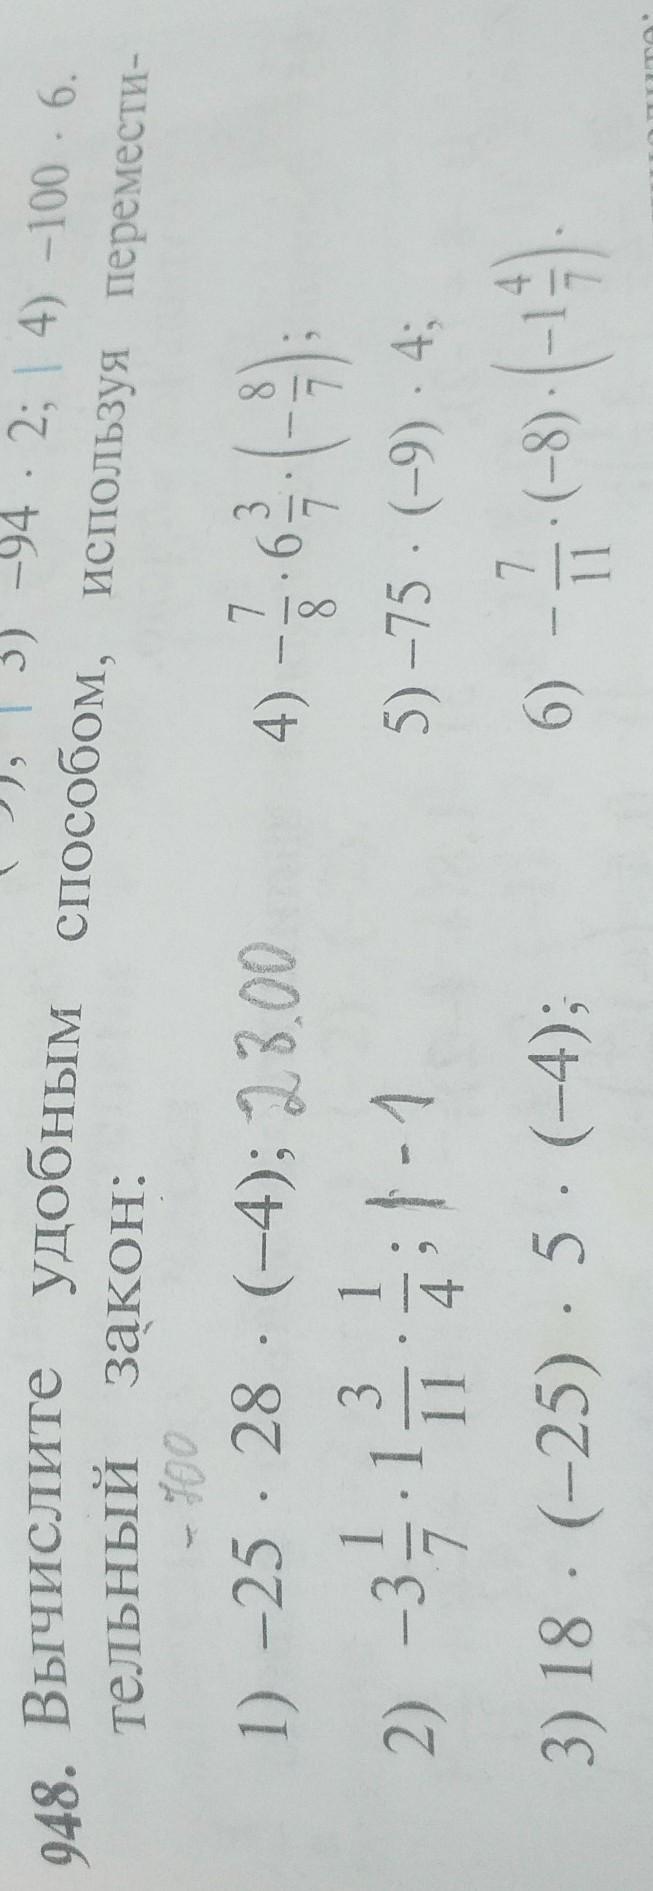 3) −94 · 2; | 4) −100 · 6.
948. Вычислите удобным способом, используя перемести-
тельный закон:
-700
1) −25 · 28 · (−4); 2800
2) −3 1/7 · 1 3/11 · 1/4; -1
3) 18 · (−25) · 5 · (−4);
4) −7/8 · 6 3/7 · (−8/7);
5) −75 · (−9) · 4;
6) −7/11 · (−8) · (−1 4/7).